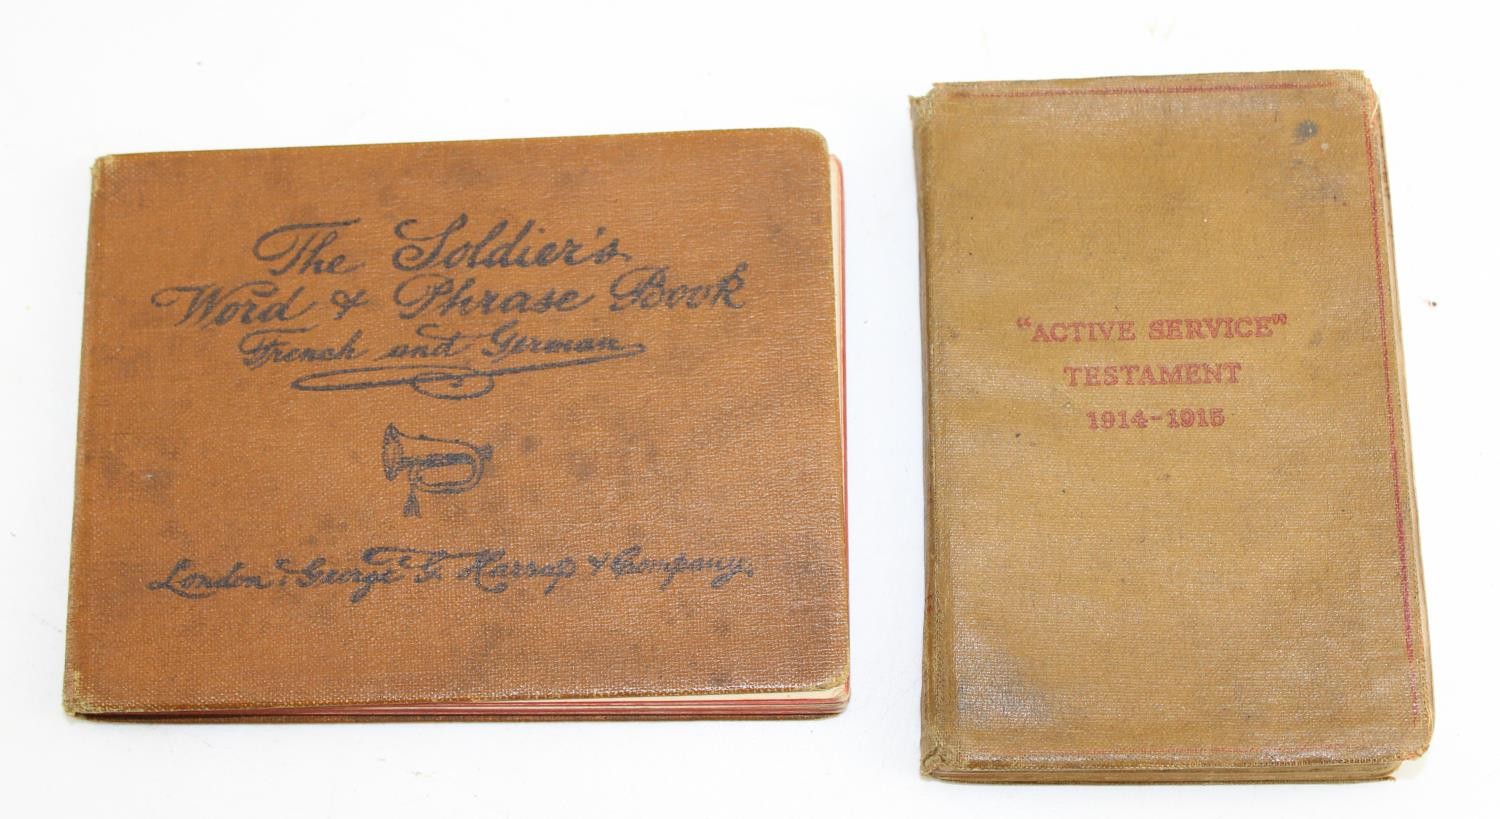 The Soldier's
Word & Phrase Book
French and German
London: George G. Harrap & Company.
"ACTIVE SERVICE"
TESTAMENT
1914-1915